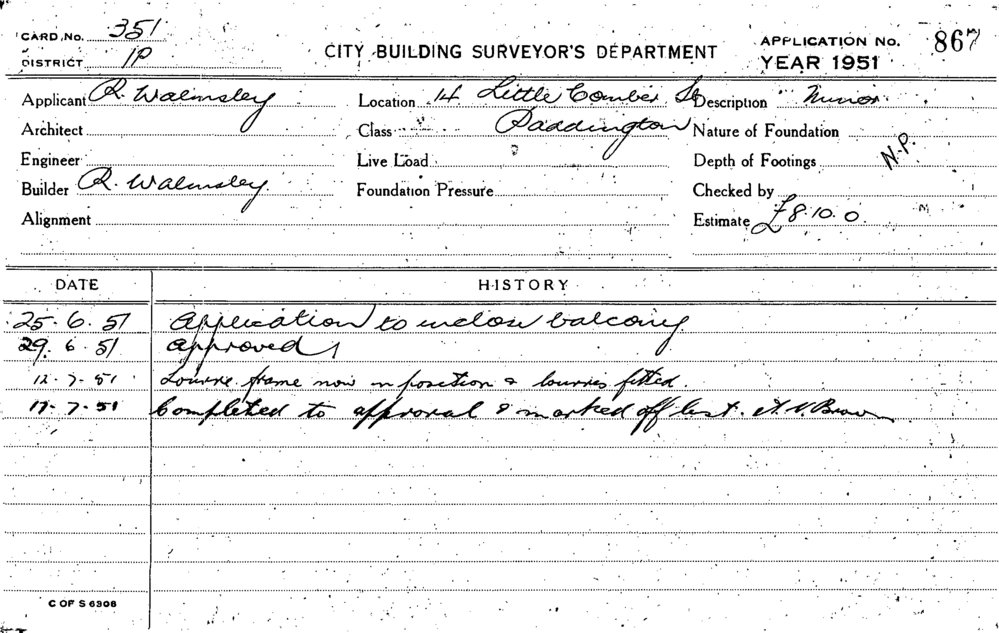 CARD No. 351
DISTRICT 1P
CITY BUILDING SURVEYOR'S DEPARTMENT
APPLICATION No. 867
YEAR 1951
Applicant R. Walmsley Location 14 Little Comber St Description Minor
Architect Class Paddington Nature of Foundation
Engineer Live Load Depth of Footings N.P.
Builder R. Walmsley Foundation Pressure Checked by
Alignment Estimate £8.10.0
DATE HISTORY
25.6.51 Application to inclose balcony
29.6.51 Approved
12.7.51 Louvre frame now in position & louvres fitted.
17.7.51 Completed to approval & marked off list.
C OF S 6308